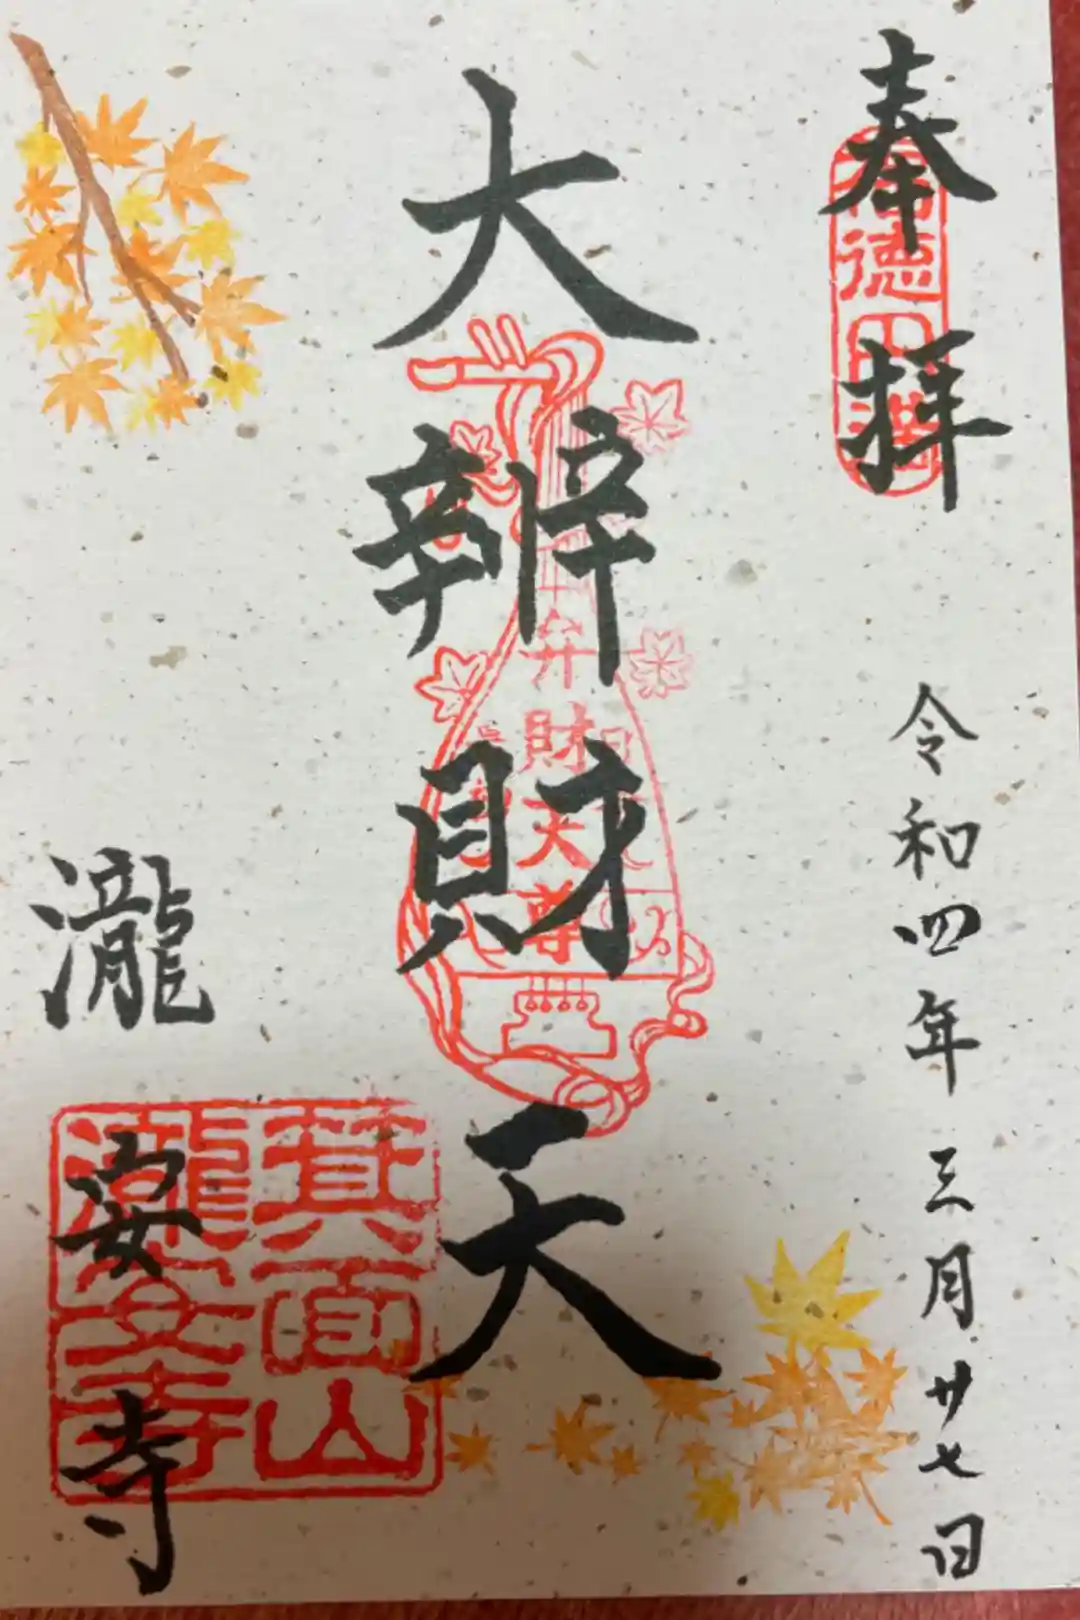 奉拝
福徳円満
令和四年三月廿七日
大辨財天
弁財天尊
瀧安寺
箕面山
瀧安寺